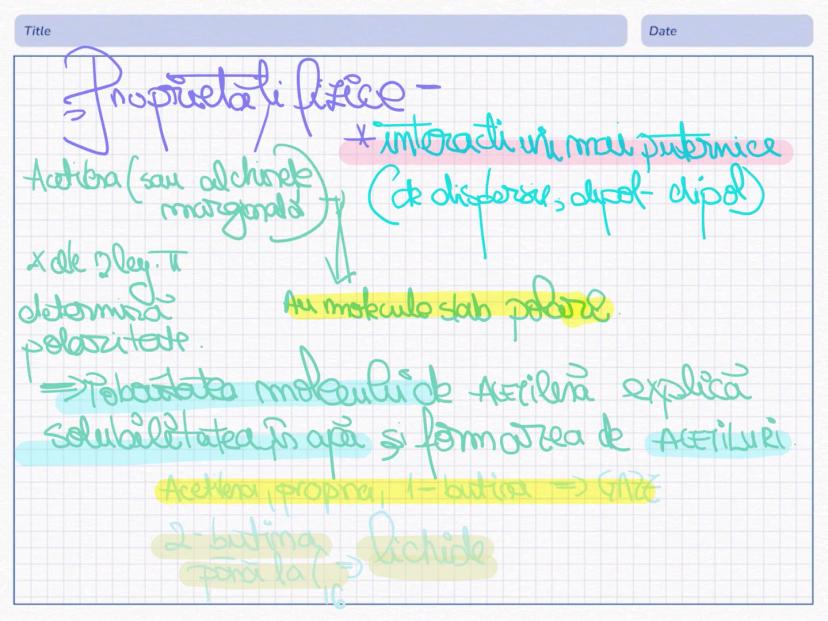 Title
Date
Proprietăți fizice -
* interacțiuni mai puternice
(de dispersie, dipol-dipol)
Acetilena (sau alchinele
marginală)
* cele 2 leg. π
determină
polaritate.
Au molecule slab polare.
=> Polaritatea moleculei de Acetilenă explică
solubilitatea în apă și formarea de ACETILURI.
Acetilena, propina, 1-butina => GAZE
2-butina
până la C16 => lichide